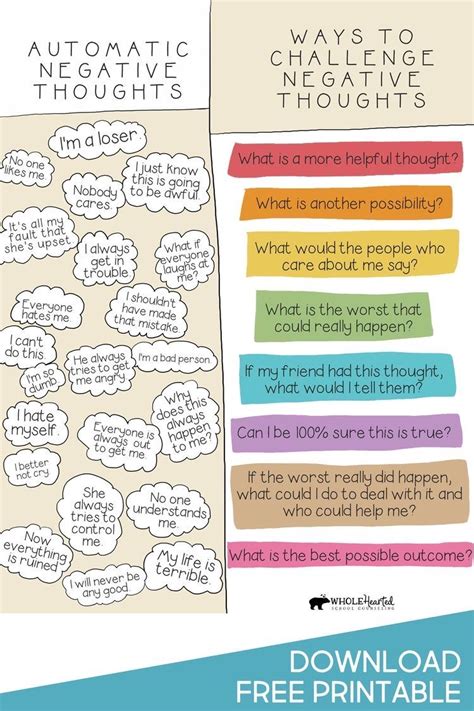 AUTOMATIC
NEGATIVE
THOUGHTS
I'm a loser.
No one
likes me.
I just know
this is going
to be awful.
Nobody
cares.
It's all my
fault that
she's upset.
I always
get in
trouble
What if
everyone
laughs at
me?
Everyone
hates me.
I shouldn't
have made
that mistake.
I can't
do this.
He always
tries to get
me angry.
I'm a bad person.
I'm so
dumb.
Why
does this
always
happen
to me?
I hate
myself.
Everyone is
always out
to get me.
I better
not cry.
She
always
tries to
control
me.
No one
understands
me.
Now
everything
is ruined.
My life is
terrible.
I will never be
any good.
WAYS TO
CHALLENGE
NEGATIVE
THOUGHTS
What is a more helpful thought?
What is another possibility?
What would the people who
care about me say?
What is the worst that
could really happen?
If my friend had this thought,
what would I tell them?
Can I be 100% sure this is true?
If the worst really did happen,
what could I do to deal with it and
who could help me?
What is the best possible outcome?
WHOLEHearted
SCHOOL COUNSELING
DOWNLOAD
FREE PRINTABLE